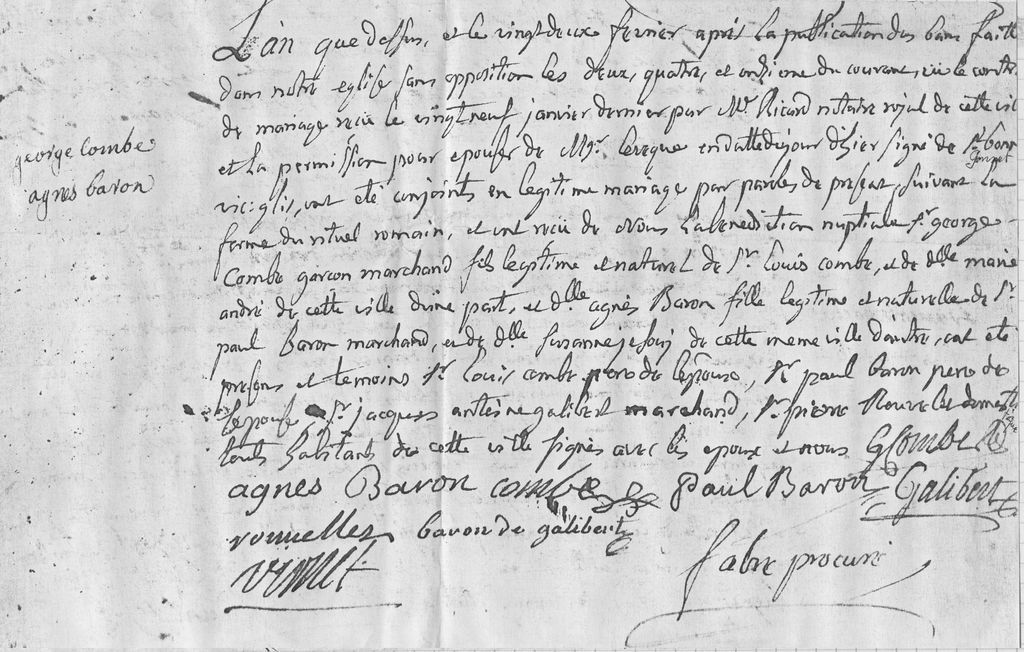 L'an que dessus, et le vingt deux fevrier après la publication des bans faitte
dans notre eglise sans opposition les deux, quatre, et onzieme du courant, vû le contr.
de mariage recu le vingt neuf janvier dernier par Mr. Ricard notaire royal de cette vil
et la permission pour epouser de Mgr. leveque en datte du jour d'hier signé de St. bon
vic: glis, ont eté conjoints en legitime mariage par paroles de present, suivant la
forme du rituel romain, et ont recu de Nous la benediction nuptiale sr. george
Combe garcon marchand fils legitime et naturel de sr. Louis combe, et de dlle marie
andré de cette ville d'une part, et dlle agnès Baron fille legitime et naturelle de sr.
paul Baron marchand, et de dlle suzanne de cette meme ville dautre, ont eté
presens et temoins sr. Louis combe pere de lepoux, sr. paul baron pere de
lepouse, sr. jacques antoine galibert marchand, sr. pierre
touts habitants de cette ville signés avec les epoux et nous GCombe
agnes Baron combe Paul Baron Galibert
baron de galibert
fabre procuré
george combe
agnes baron